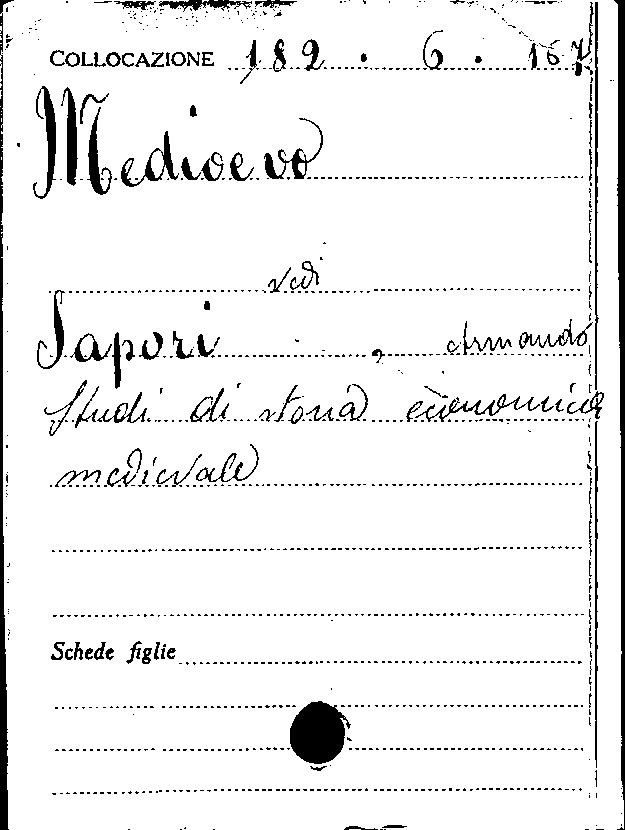 COLLOCAZIONE 182 . 6 . 167
Medioevo
vedi
Sapori , Armando
Studi di storia economica
medievale
Schede figlie